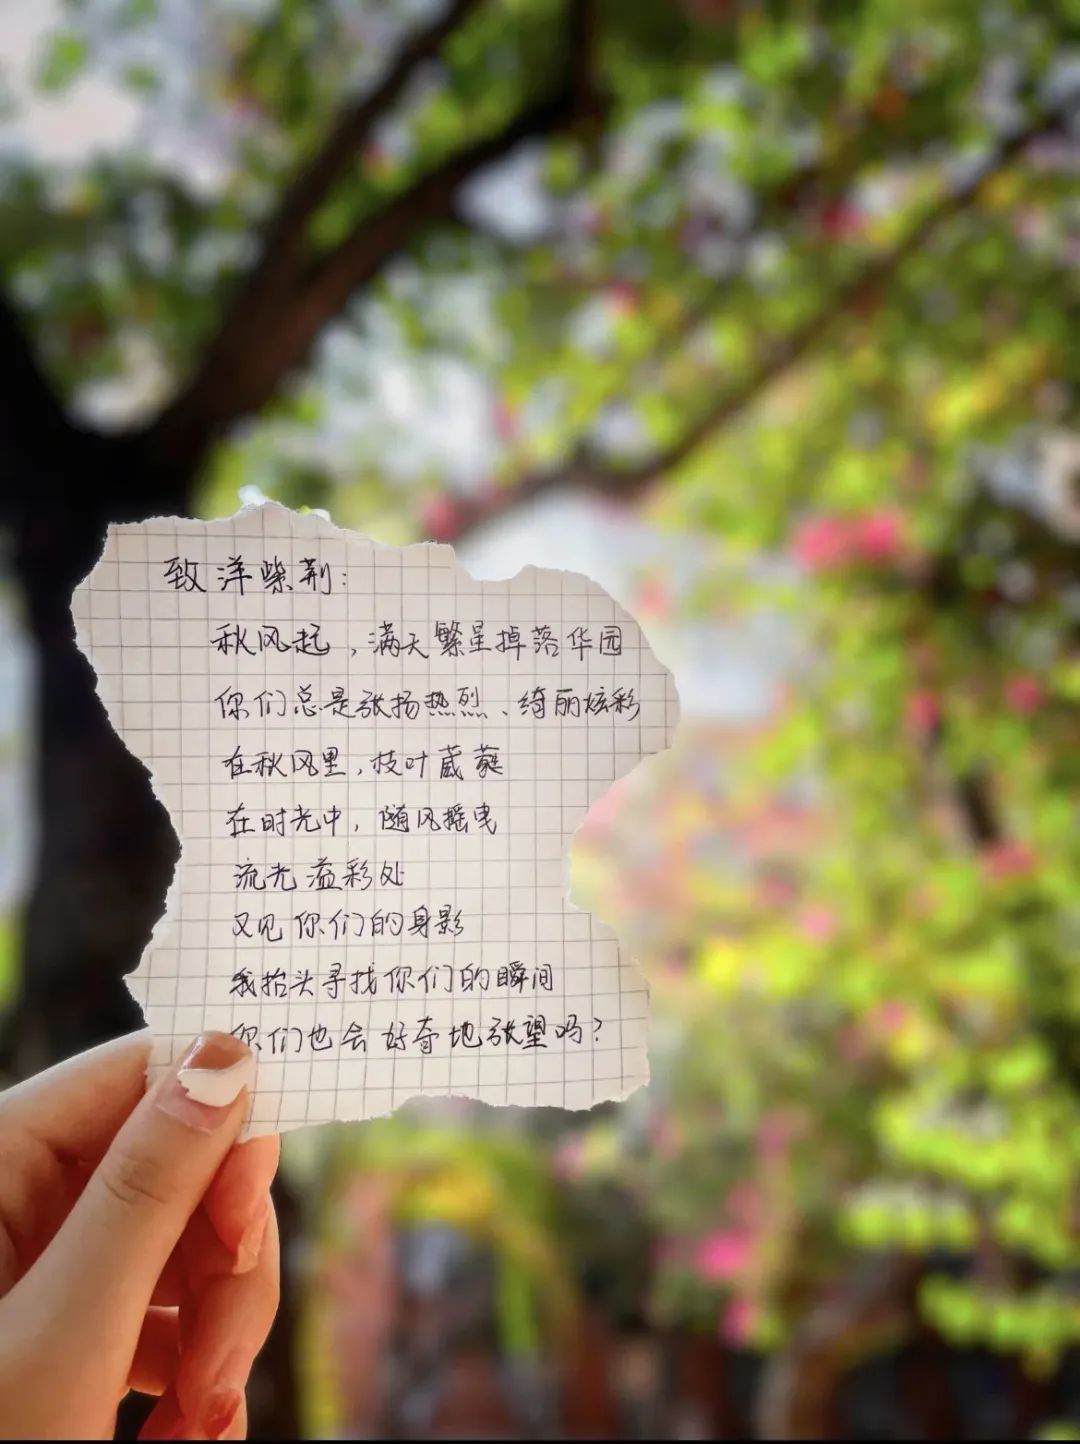 致洋紫荆：
秋风起，满天繁星掉落华园
你们总是张扬热烈、绮丽炫彩
在秋风里，枝叶葳蕤
在时光中，随风摇曳
流光溢彩处
又见你们的身影
我抬头寻找你们的瞬间
你们也会好奇地张望吗？